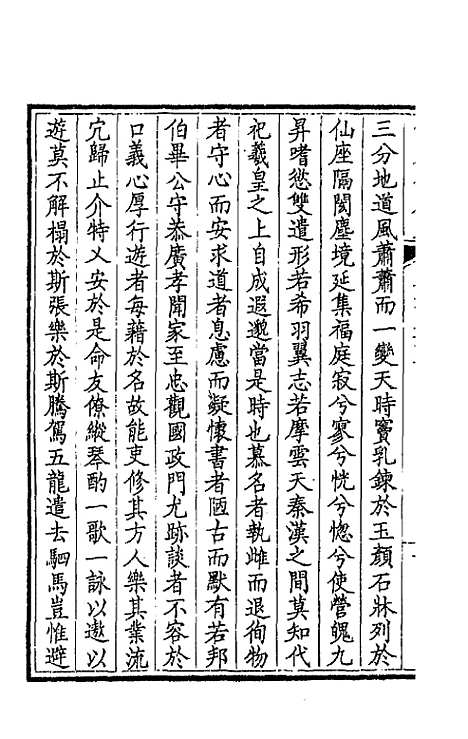 三分地道風蕭蕭而一變天時竇乳鍊於玉顏石牀列於
仙座隔閡塵境延集福庭寂兮寥兮恍兮惚兮使營魄九
昇嗜慾雙遣形若希羽翼志若摩雲天秦漢之間莫知代
祀羲皇之上自成遐邈當是時也慕名者執雌而退徇物
者守心而安求道者息慮而凝懷書者陋古而默有若邦
伯畢公守恭廣孝聞家至忠觀國政門尤跡談者不容於
口義心厚行遊者每藉於名故能吏修其方人樂其業流
宂歸止介特乂安於是命友僚縱琴酌一歌一詠以遨以
遊莫不解榻於斯張樂於斯騰駕五龍遣去駟馬豈惟避